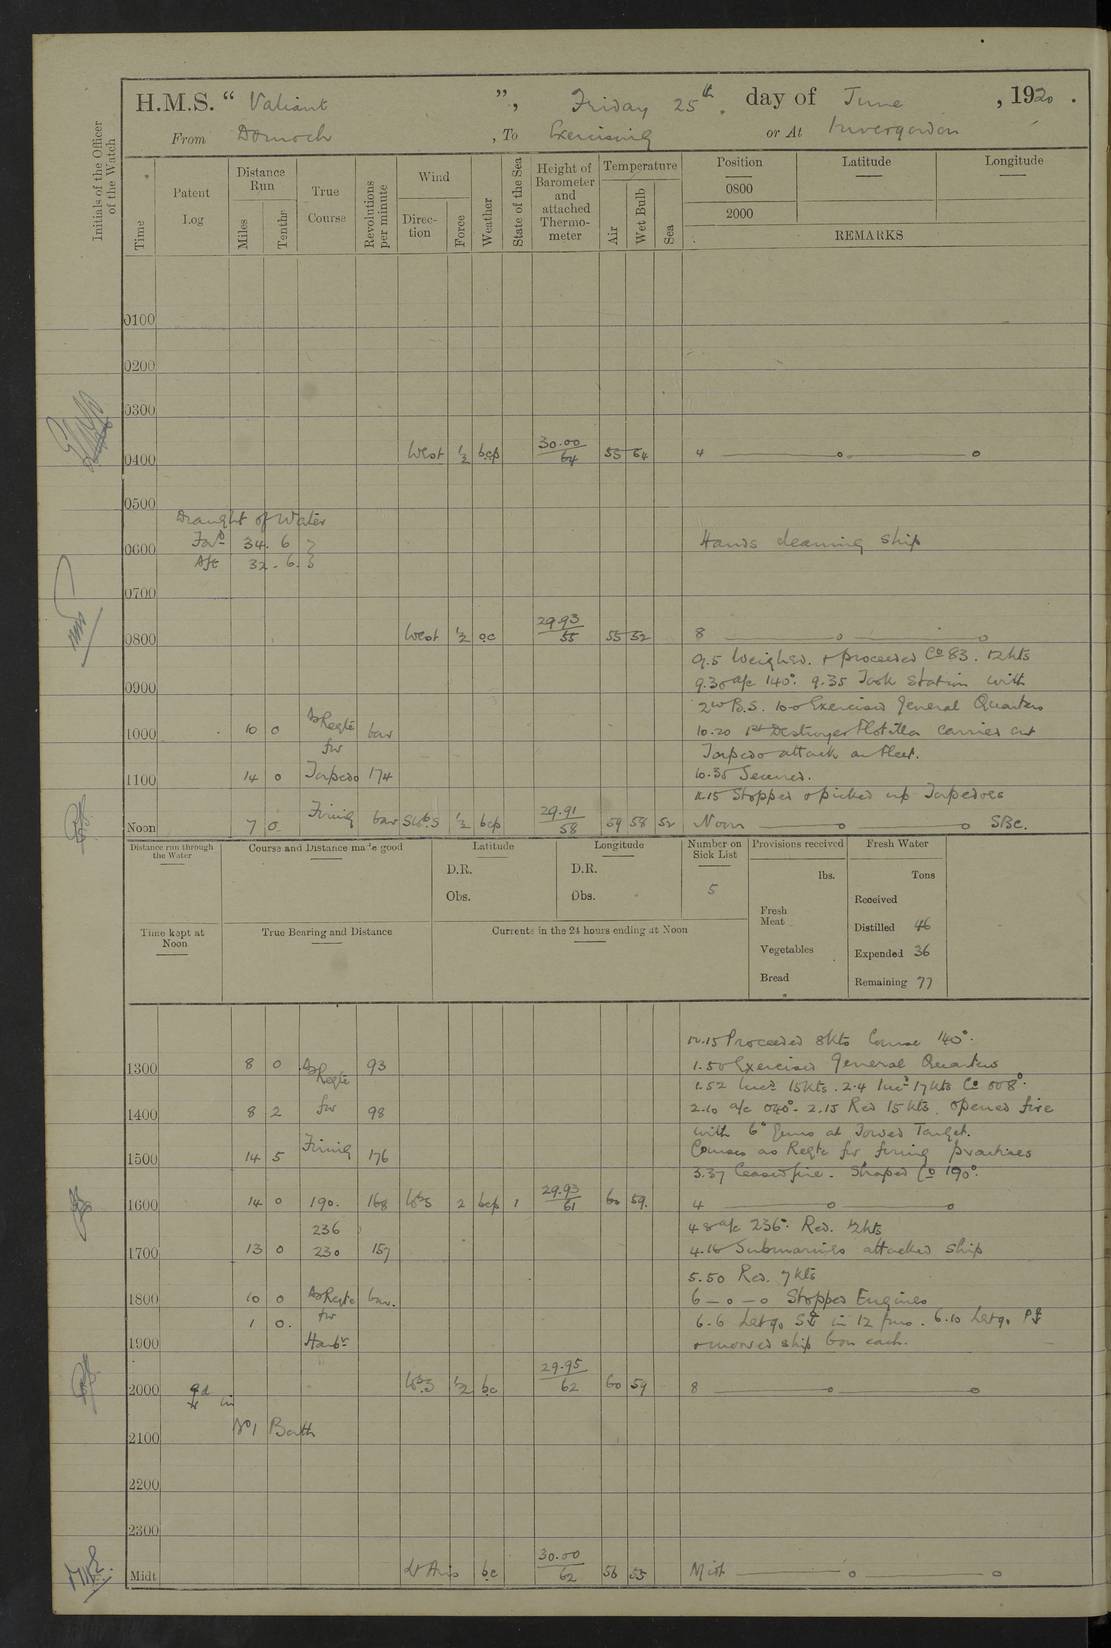 H.M.S. “ Valiant ”, Friday 25th. day of June , 1920 .
From Dornoch , To Exercising or At Invergordon
Initials of the Officer of the Watch
Time
Patent Log
Distance Run
Miles
Tenths
True Course
Revolutions per minute
Wind
Direction
Force
Weather
State of the Sea
Height of Barometer and attached Thermometer
Temperature
Air
Wet Bulb
Sea
Position Latitude Longitude
0800
2000
REMARKS
0100
0200
0300
0400 West ½ bcp 30.00 64 55 54 4
0500
Draught of Water
For'd 34. 6
0600 Hands cleaning ship
Aft 32. 6.
0700
0800 West ½ oc 29.93 55 55 52 8
9.5 Weighed. & proceeded Co 83. 12kts
9.30 a/c 140°. 9.35 Took Station with
0900
2nd B.S. 10.0 Exercised General Quarters
1000 10 0 As Reqte for bar 10.20 1st Destroyer Flotilla carried out
Torpedo attack on fleet.
1100 14 0 Torpedo 174 10.35 Secured.
11.15 Stopped & picked up Torpedoes
Noon 7 0 Firing bar SWbS ½ bcp 29.91 58 59 58 52 Noon SBC.
Distance run through the Water
Course and Distance made good
Latitude
D.R.
Obs.
Longitude
D.R.
Obs.
Number on Sick List
5
Provisions received
lbs.
Fresh Meat
Vegetables
Bread
Fresh Water
Tons
Received
Distilled 46
Expended 36
Remaining 77
Time kept at Noon
True Bearing and Distance
Currents in the 24 hours ending at Noon
12.15 Proceeded 8kts Course 140°.
1300 8 0 As Reqte 93 1.50 Exercised General Quarters
1.52 Incd 15kts. 2.4 Incd 17kts Co 008°.
1400 8 2 for 98 2.10 a/c 040°. 2.15 Red 15kts. opened fire
with 6" Guns at Towed Target.
1500 14 5 Firing 176 Courses as Reqte for firing practises
3.37 Ceased fire. Shaped Co 190°.
1600 14 0 190. 168 WbS 2 bcp 1 29.93 61 60 59. 4
236 4.8 a/c 236°. Red. 12kts
1700 13 0 230 157 4.16 Submarines attacked ship
5.50 Red. 7kts
1800 10 0 As Reqte bar. 6 Stopped Engines
1 0. for 6.6 Let go in 12 fms. 6.10 Let go
1900 Harbr & moored ship on each.
2000 WbS ½ bc 29.95 62 60 59 8
No 1 Bath
2100
2200
2300
Midt Lt Airs bc 30.00 62 56 55 Midt